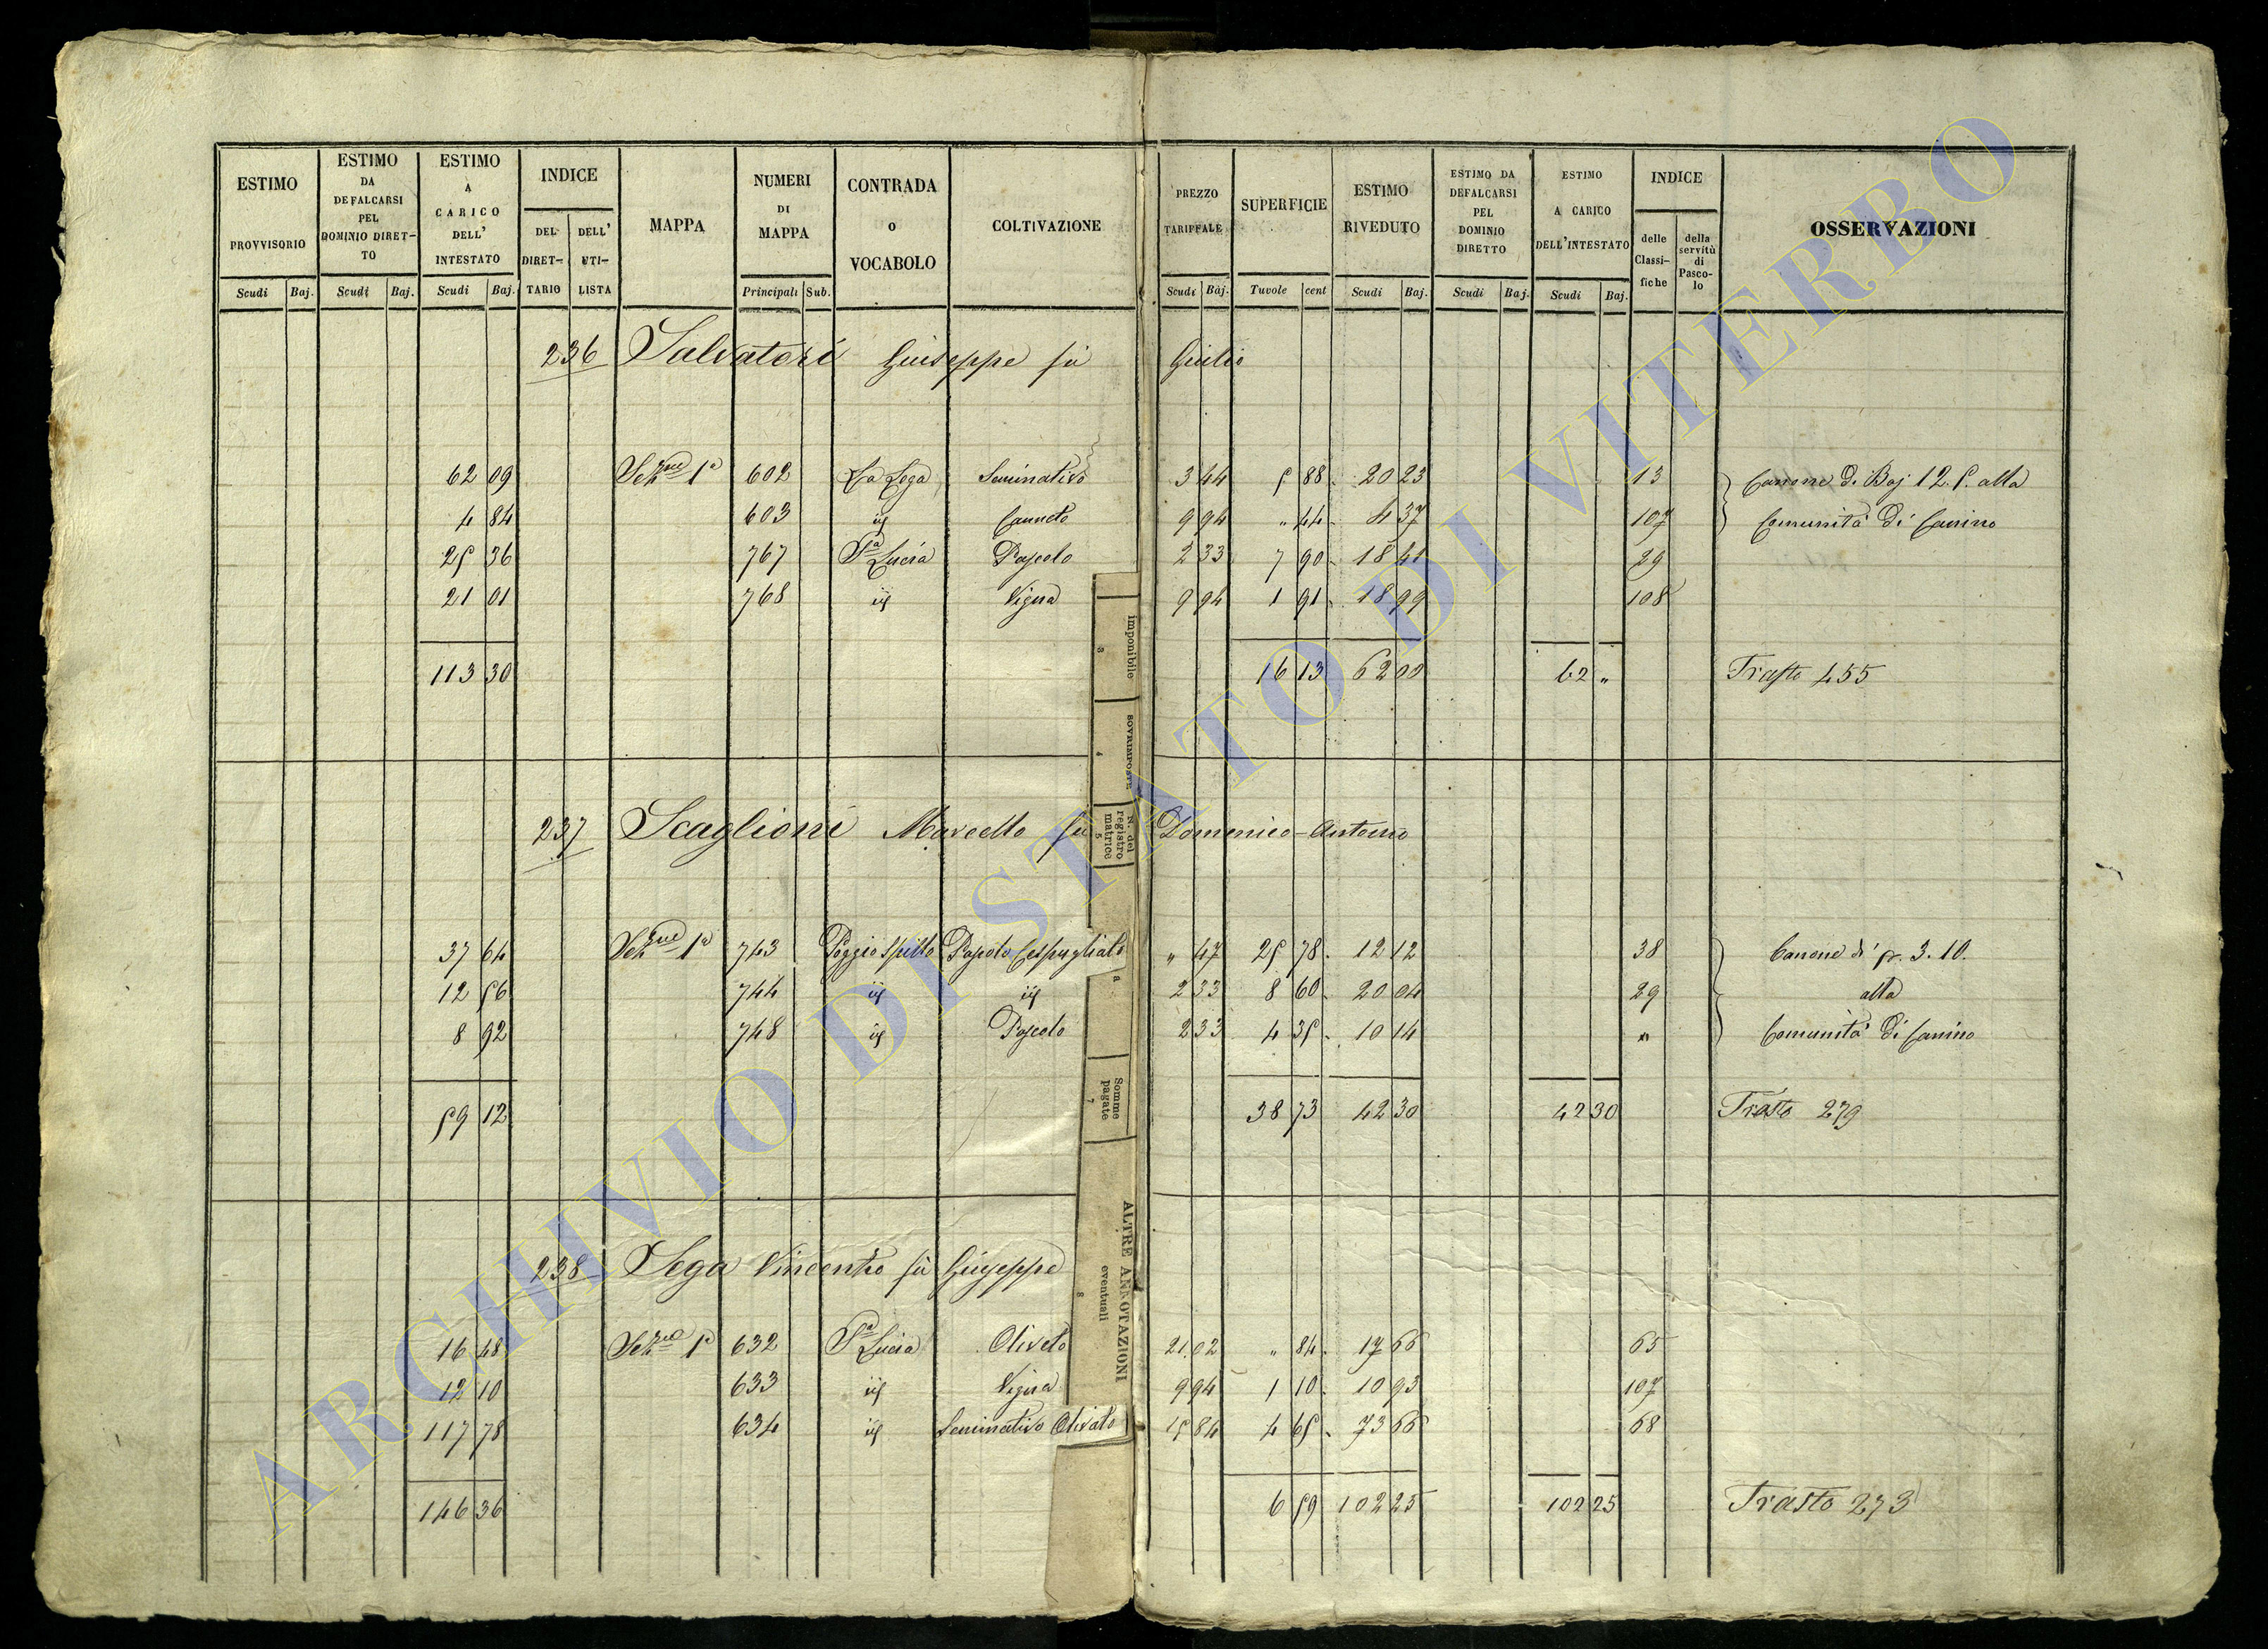 ESTIMO PROVVISORIO Scudi Baj.
ESTIMO DA DEFALCARSI PEL DOMINIO DIRET-TO Scudi Baj.
ESTIMO A CARICO DELL' INTESTATO Scudi Baj.
INDICE DEL DIRET-TARIO DELL' UTI-LISTA
MAPPA
NUMERI DI MAPPA Principali Sub.
CONTRADA o VOCABOLO
COLTIVAZIONE
PREZZO TARIFFALE Scudi Baj.
SUPERFICIE Tavole cent
ESTIMO RIVEDUTO Scudi Baj.
ESTIMO DA DEFALCARSI PEL DOMINIO DIRETTO Scudi Baj.
ESTIMO A CARICO DELL'INTESTATO Scudi Baj.
INDICE delle Classi-fiche della servitù di Pasco-lo
OSSERVAZIONI
236 Salvatori Giuseppe fù Giulio
62 09 Sezne 1a 602 La Lega Seminativo 3 44 5 88 20 23 13 Canone di Baj 12.5. alla
4 84 603 id Canneto 9 94 " 44 4 37 107 Comunità di Canino
25 36 767 Sa Lucia Pascolo 2 33 7 90 18 41 29
21 01 768 id Vigna 9 94 1 91 18 99 108
113 30 16 13 62 00 62 " Trasto 455
237 Scaglioni Marcello fù Domenico Antonio
37 64 Sezne 1a 743 Poggio Spillo Pascolo Cespugliato " 47 25 78 12 12 38 Canone di 3.10.
12 56 744 id id 2 33 8 60 20 04 29 alla
8 92 748 id Pascolo 2 33 4 35 10 14 " Comunità di Canino
59 12 38 73 42 30 42 30 Trasto 279
238 Sega Vincenzo fù Giuseppe
16 48 Sezne 1a 632 Sa Lucia Oliveto 21 02 " 84 17 66 65
12 10 633 id Vigna 9 94 1 10 10 93 107
117 78 634 id Seminativo Olivato 15 84 4 65 73 66 68
146 36 6 59 102 25 102 25 Trasto 273
imponibile
3
sovrimposte
4
N. del registro matrice
5
6
Somme pagate
7
ALTRE ANNOTAZIONI
eventuali
8
ARCHIVIO DI STATO DI VITERBO